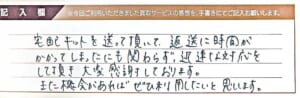 記入欄
※今回ご利用いただきました買取サービスの感想を、手書きにてご記入お願いします。
宅配キットを送って頂いて、返送に時間が
かかってしまったにも関わらず、迅速な対応を
して頂き大変感謝しております。
また機会があればぜひ利用したいと思います。